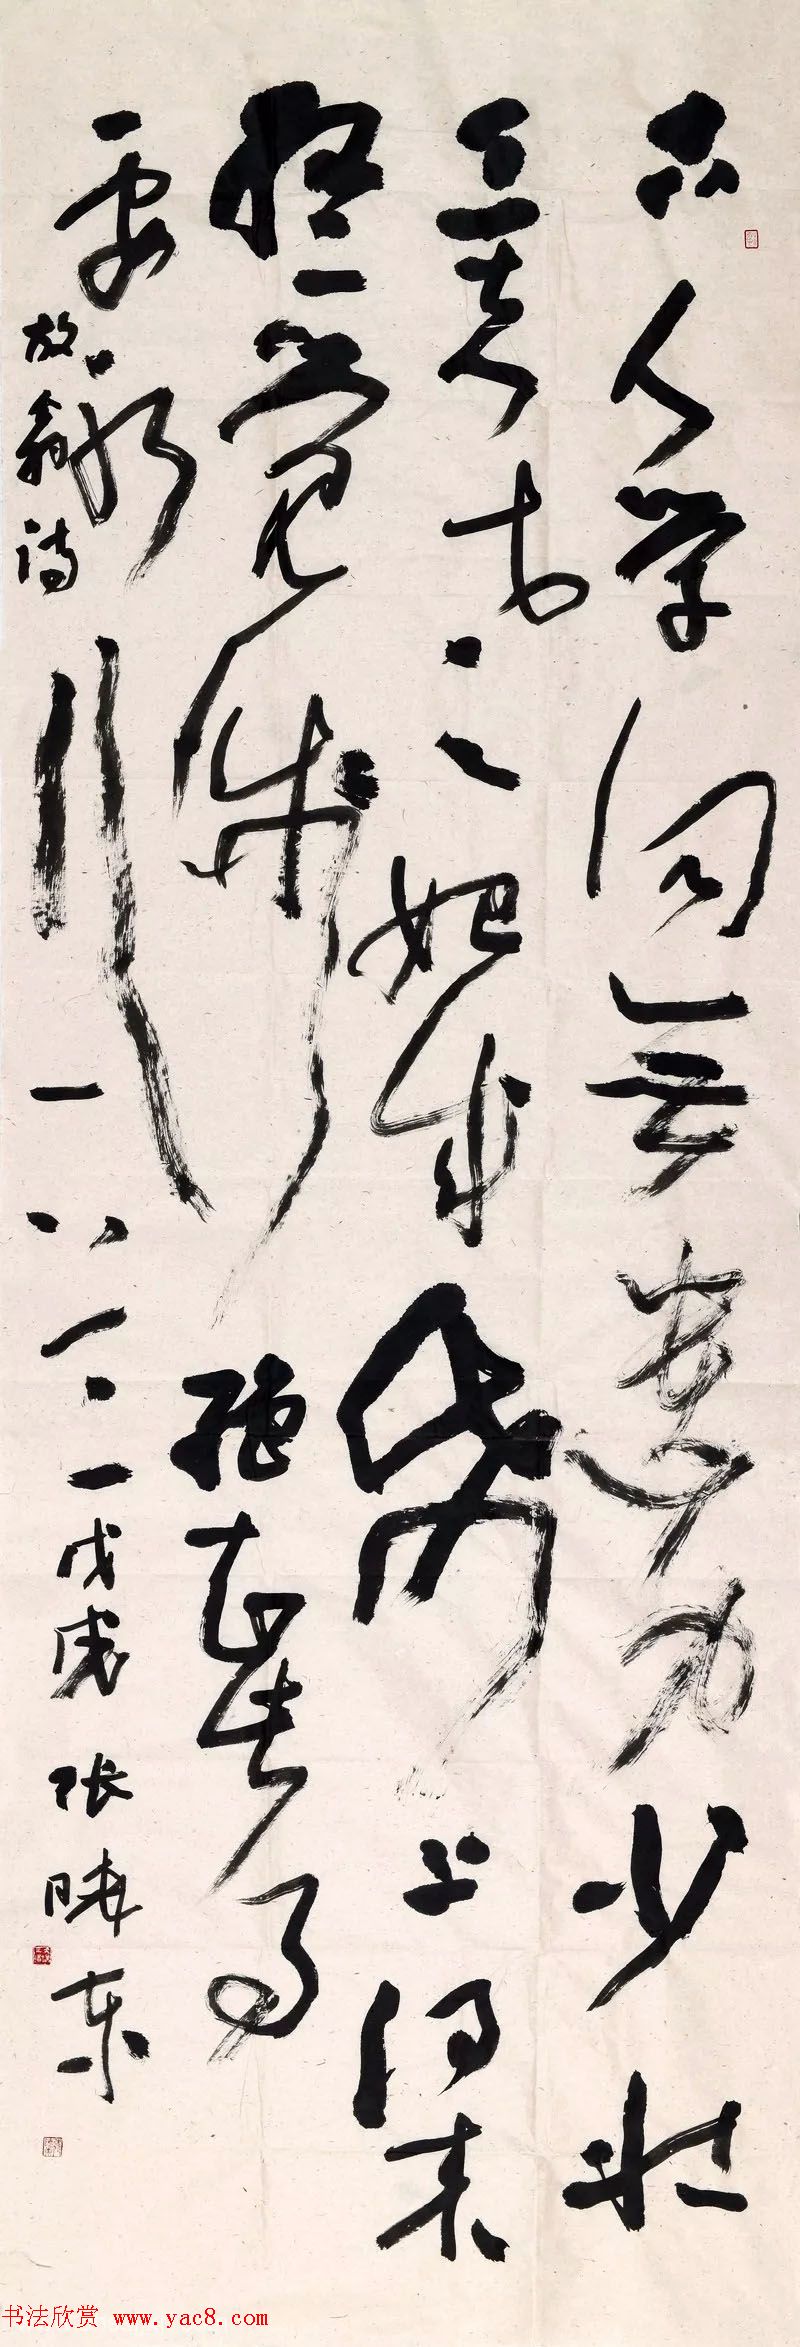 古人学问无遗力少壮
工夫老始成纸上得来
终觉浅绝知此事
要躬行
放翁诗
戊戌张晓东
书法欣赏 www.yac8.com